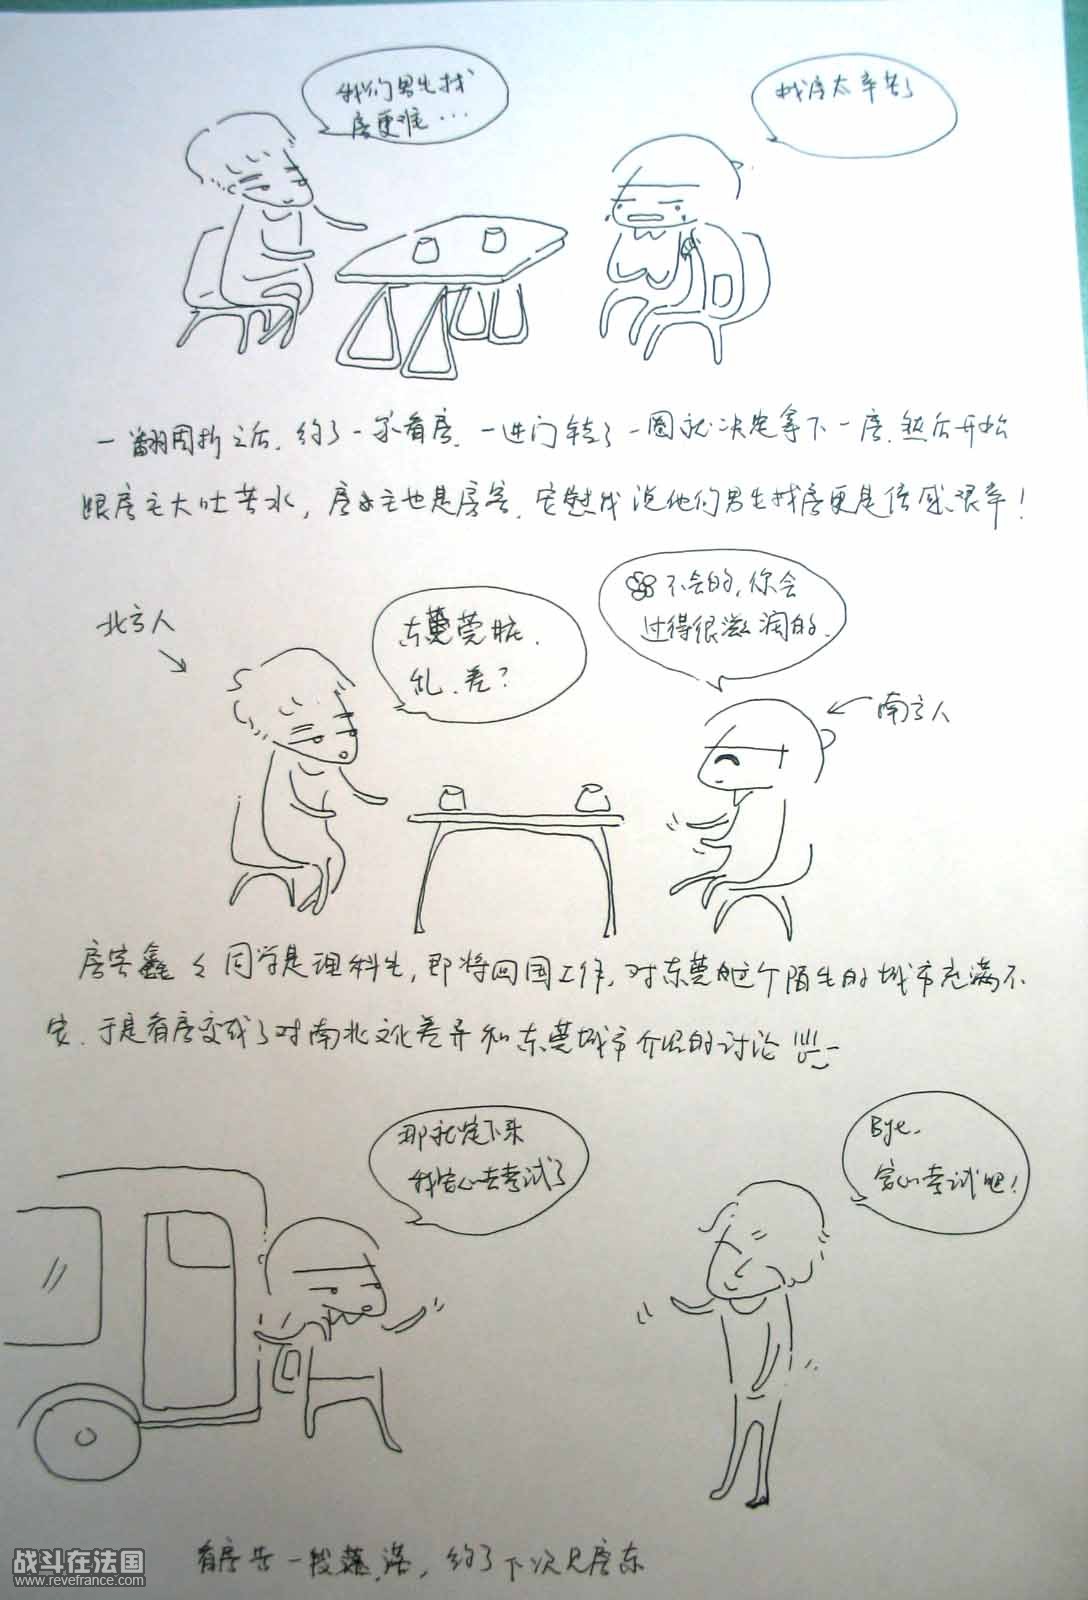 我们男生找
房更难...
找房太辛苦了
一翻周折之后，约了一家看房，一进门转了一圈就决定拿下一房，然后开始
跟房主大吐苦水，房主也是房客，安慰我说他们男生找房更是倍感艰辛！
北方人
东莞脏、
乱、差？
不会的，你会
过得很滋润的、
南方人
房客鑫々同学是理科生，即将回国工作，对东莞这个陌生的城市充满不
安、于是看房变成了对南北文化差异和东莞城市介绍的讨论
那就定下来
我安心去考试了
Bye、
安心考试吧！
看房告一段落，约了下次见房东
战斗在法国
www.revefrance.com